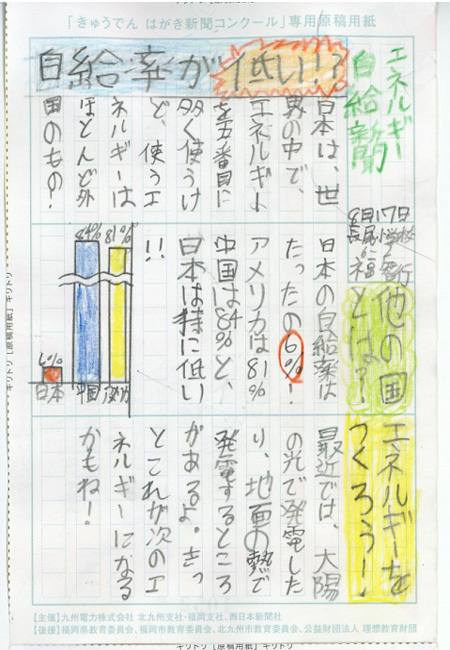 「きゅうでん はがき新聞コンクール」専用原稿用紙
エネルギー
自給新聞
8月17日
長尾小学校
6-2
福 発行
自給率が低い!?
日本は、世
界の中で、
エネルギー
を五番目に
多く使うけ
ど、使うエ
ネルギーは
ほとんど外
国のもの!
他の国
とは?!
日本の自給率は
たったの6%!
アメリカは81%
中国は84%と、
日本は特に低い
!!
84%
81%
6%
日本
中国
アメリカ
エネルギーを
つくろう!
最近では、太陽
の光で発電した
り、地面の熱で
発電するところ
があるよ。きっ
とこれが次のエ
ネルギーになる
かもね!
【主催】九州電力株式会社 北九州支社・福岡支社、西日本新聞社
【後援】福岡県教育委員会、福岡市教育委員会、北九州市教育委員会、公益財団法人 理想教育財団
キリトリ【原稿用紙】キリトリ
キリトリ【原稿用紙】キリトリ